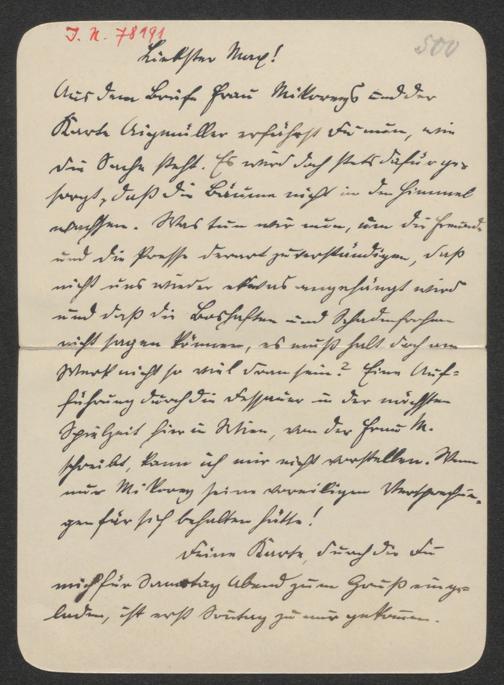 I. N. 78191
500
Liebster Max!
Aus dem Briefe Frau Mikoreys und der
Karte Aigmüller erfährst Du nun, wie
die Sache steht. Es wird doch stets dafür ge-
sorgt, daß die Bäume nicht in den Himmel
wachsen. Was tun wir nun, um die Freunde
und die Presse derart zu verständigen, daß
nicht uns wieder etwas angehängt wird
und daß die Boshaften und Schadenfrohen
nicht sagen können, es muß halt doch am
Werk nicht so viel dran sein? Eine Auf-
führung durch die Dessauer in der nächsten
Spielzeit hier in Wien, von der Frau M.
schreibt, kann ich mir nicht vorstellen. Wenn
nur Mikorey seine voreiligen Versprechun-
gen für sich behalten hätte!
Deine Karte, durch die Du
mich für Samstag Abend zum Gruß einge-
laden, ist erst Sonntag zu mir gekommen.